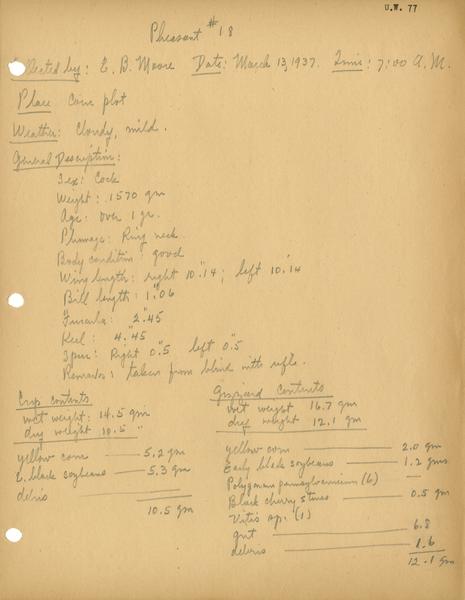 U.W. 77
Pheasant #18
Collected by: E. B. Moore Date: March 13, 1937. Time: 7:00 A.M.
Place: Corn plot
Weather: Cloudy, mild.
General Description:
Sex: Cock
Weight: 1570 gm
Age: over 1 yr.
Plumage: Ring neck.
Body condition: good
Wing length: right 10."14; left 10."14
Bill length: 1."06
Furcula: 2."45
Keel: 4."45
Spur: Right 0."5 left 0."5
Remarks: taken from blind with rifle.
Crop contents
wet weight: 14.5 gm
dry weight 10.5 "
yellow corn — 5.2 gm
E. black soybeans — 5.3 gm
debris
10.5 gm
Gizzard contents
wet weight 16.7 gm
dry weight 12.1 gm
yellow corn — 2.0 gm
Early black soybeans — 1.2 gms
Polygonum pennsylvanicum (6) —
Black cherry stones — 0.5 gm
Vitis sp. (1)
grit — 6.8
debris — 1.6
12.1 gm